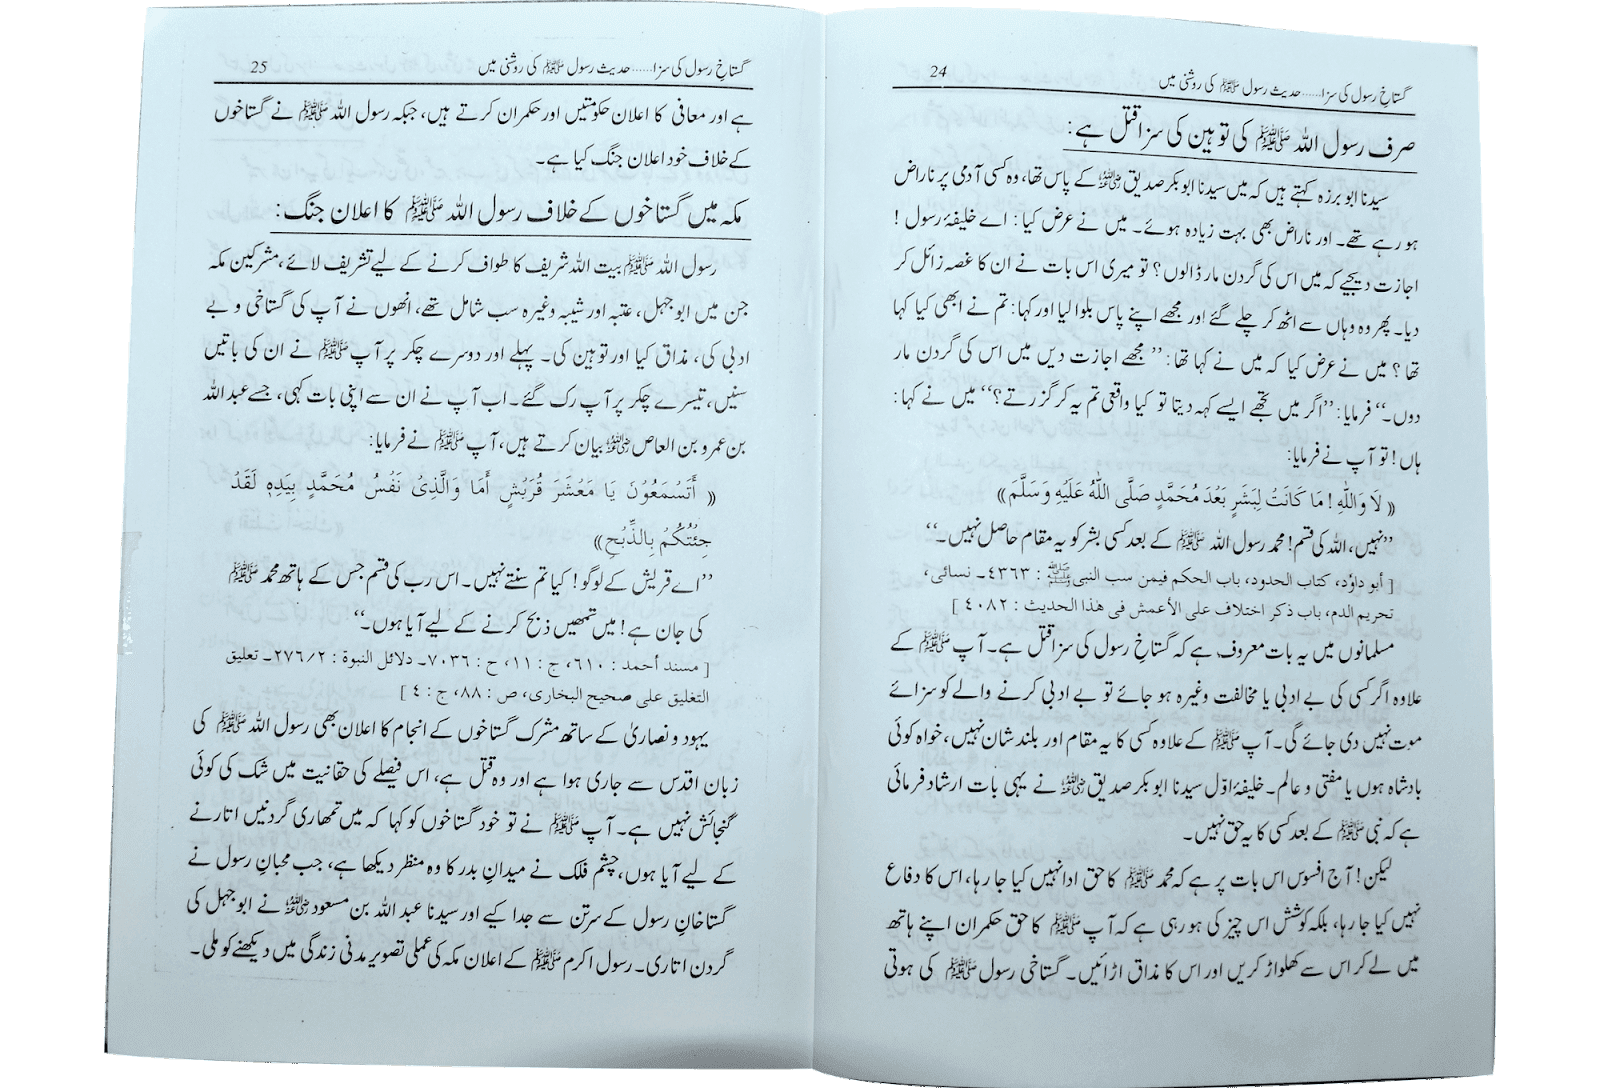 گستاخِ رسول کی سزا......حدیث رسول ﷺ کی روشنی میں 24
صرف رسول اللہ ﷺ کی توہین کی سزا قتل ہے:
سیدنا ابو برزہ کہتے ہیں کہ میں سیدنا ابو بکر صدیق ؓ کے پاس تھا، وہ کسی آدمی پر ناراض
ہو رہے تھے۔ اور ناراض بھی بہت زیادہ ہوئے۔ میں نے عرض کیا: اے خلیفۂ رسول!
اجازت دیجیے کہ میں اس کی گردن مار ڈالوں؟ تو میری اس بات نے ان کا غصہ زائل کر
دیا۔ پھر وہ وہاں سے اٹھ کر چلے گئے اور مجھے اپنے پاس بلوا لیا اور کہا: تم نے ابھی کیا کہا
تھا؟ میں نے عرض کیا کہ میں نے کہا تھا: ’’مجھے اجازت دیں میں اس کی گردن مار
دوں۔‘‘ فرمایا: ’’اگر میں تجھے ایسے کہہ دیتا تو کیا واقعی تم یہ کر گزرتے؟‘‘ میں نے کہا:
ہاں! تو آپ نے فرمایا:
« لَا وَاللّٰهِ! مَا كَانَتْ لِبَشَرٍ بَعْدَ مُحَمَّدٍ صَلَّى اللّٰهُ عَلَيْهِ وَسَلَّمَ»
’’نہیں، اللہ کی قسم! محمد رسول اللہ ﷺ کے بعد کسی بشر کو یہ مقام حاصل نہیں۔‘‘
[ أبو داوٗد، كتاب الحدود، باب الحكم فيمن سب النبي ﷺ : ٤٣٦٣۔ نسائى،
تحريم الدم، باب ذكر اختلاف على الأعمش فى هٰذا الحديث : ٤٠٨٢ ]
مسلمانوں میں یہ بات معروف ہے کہ گستاخِ رسول کی سزا قتل ہے۔ آپ ﷺ کے
علاوہ اگر کسی کی بے ادبی یا مخالفت وغیرہ ہو جائے تو بے ادبی کرنے والے کو سزائے
موت نہیں دی جائے گی۔ آپ ﷺ کے علاوہ کسی کا یہ مقام اور بلند شان نہیں، خواہ کوئی
بادشاہ ہوں یا مفتی و عالم۔ خلیفۂ اوّل سیدنا ابو بکر صدیق ؓ نے یہی بات ارشاد فرمائی
ہے کہ نبی ﷺ کے بعد کسی کا یہ حق نہیں۔
لیکن! آج افسوس اس بات پر ہے کہ محمد ﷺ کا حق ادا نہیں کیا جا رہا، اس کا دفاع
نہیں کیا جا رہا، بلکہ کوشش اس چیز کی ہو رہی ہے کہ آپ ﷺ کا حق حکمران اپنے ہاتھ
میں لے کر اس سے کھلواڑ کریں اور اس کا مذاق اڑائیں۔ گستاخی رسول ﷺ کی ہوتی
گستاخِ رسول کی سزا......حدیث رسول ﷺ کی روشنی میں 25
ہے اور معافی کا اعلان حکومتیں اور حکمران کرتے ہیں، جبکہ رسول اللہ ﷺ نے گستاخوں
کے خلاف خود اعلان جنگ کیا ہے۔
مکہ میں گستاخوں کے خلاف رسول اللہ ﷺ کا اعلان جنگ:
رسول اللہ ﷺ بیت اللہ شریف کا طواف کرنے کے لیے تشریف لائے، مشرکین مکہ
جن میں ابوجہل، عتبہ اور شیبہ وغیرہ سب شامل تھے، انھوں نے آپ کی گستاخی و بے
ادبی کی، مذاق کیا اور توہین کی۔ پہلے اور دوسرے چکر پر آپ ﷺ نے ان کی باتیں
سنیں، تیسرے چکر پر آپ رک گئے۔ اب آپ نے ان سے اپنی بات کہی، جسے عبداللہ
بن عمرو بن العاص ؓ بیان کرتے ہیں، آپ ﷺ نے فرمایا:
« أَتَسْمَعُوْنَ يَا مَعْشَرَ قُرَيْشٍ أَمَا وَالَّذِىْ نَفْسُ مُحَمَّدٍ بِيَدِهٖ لَقَدْ
جِئْتُكُمْ بِالذَّبْحِ»
’’اے قریش کے لوگو! کیا تم سنتے نہیں۔ اس رب کی قسم جس کے ہاتھ محمد ﷺ
کی جان ہے! میں تمھیں ذبح کرنے کے لیے آیا ہوں۔‘‘
[ مسند أحمد : ٦١٠، ج : ١١، ح : ٧٠٣٦۔ دلائل النبوة : ٢٧٦/٢۔ تعليق
التغليق على صحيح البخارى، ص : ٨٨، ج : ٤ ]
یہود و نصاریٰ کے ساتھ مشرک گستاخوں کے انجام کا اعلان بھی رسول اللہ ﷺ کی
زبان اقدس سے جاری ہوا ہے اور وہ قتل ہے، اس فیصلے کی حقانیت میں شک کی کوئی
گنجائش نہیں ہے۔ آپ ﷺ نے تو خود گستاخوں کو کہا کہ میں تمھاری گردنیں اتارنے
کے لیے آیا ہوں، چشم فلک نے میدانِ بدر کا وہ منظر دیکھا ہے، جب محبانِ رسول نے
گستاخانِ رسول کے سر تن سے جدا کیے اور سیدنا عبداللہ بن مسعود ؓ نے ابوجہل کی
گردن اتاری۔ رسول اکرم ﷺ کے اعلان مکہ کی عملی تصویر مدنی زندگی میں دیکھنے کو ملی۔